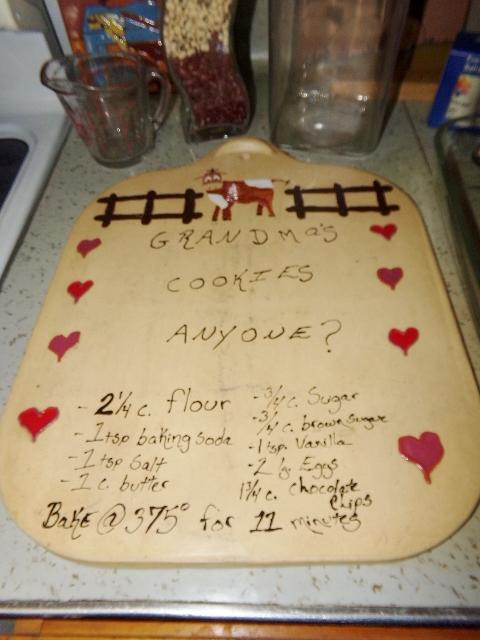 GRANDMa's
COOKIES
ANYONE?
- 2 1/4 c. flour
- 1 tsp baking soda
- 1 tsp Salt
- 1 c. butter
- 3/4 c. Sugar
- 3/4 c. brown sugar
- 1 tsp. Vanilla
- 2 lg. Eggs
1 3/4 c. chocolate
chips
Bake @ 375° for 11 minutes